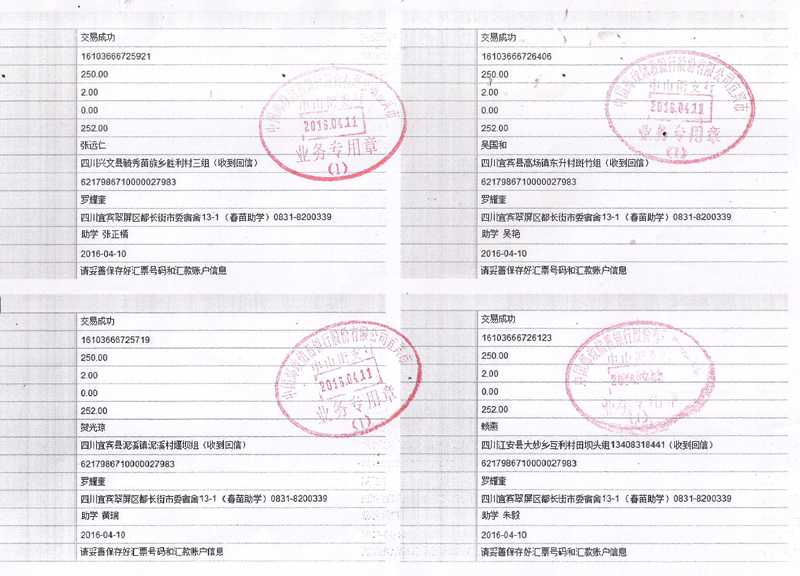 交易成功
16103666725921
250.00
2.00
0.00
252.00
张远仁
四川兴文县毓秀苗族乡胜利村三组（收到回信）
6217986710000027983
罗耀奎
四川宜宾翠屏区都长街市委宿舍13-1（春苗助学）0831-8200339
助学 张正橘
2016-04-10
请妥善保存好汇票号码和汇款账户信息
中山街支行
2016.04.11
业务专用章
(1)
交易成功
16103666726406
250.00
2.00
0.00
252.00
吴国和
四川宜宾县高场镇东升村斑竹组（收到回信）
6217986710000027983
罗耀奎
四川宜宾翠屏区都长街市委宿舍13-1（春苗助学）0831-8200339
助学 吴艳
2016-04-10
请妥善保存好汇票号码和汇款账户信息
中山街支行
2016.04.11
业务专用章
(1)
交易成功
16103666725719
250.00
2.00
0.00
252.00
贺光琼
四川宜宾县泥溪镇泥溪村堰坝组（收到回信）
6217986710000027983
罗耀奎
四川宜宾翠屏区都长街市委宿舍13-1（春苗助学）0831-8200339
助学 黄瑞
2016-04-10
请妥善保存好汇票号码和汇款账户信息
中山街支行
2016.04.11
业务专用章
(1)
交易成功
16103666726123
250.00
2.00
0.00
252.00
赖燕
四川江安县大妙乡互利村田坝头组13408318441（收到回信）
6217986710000027983
罗耀奎
四川宜宾翠屏区都长街市委宿舍13-1（春苗助学）0831-8200339
助学 朱毅
2016-04-10
请妥善保存好汇票号码和汇款账户信息
中山街支行
(1)